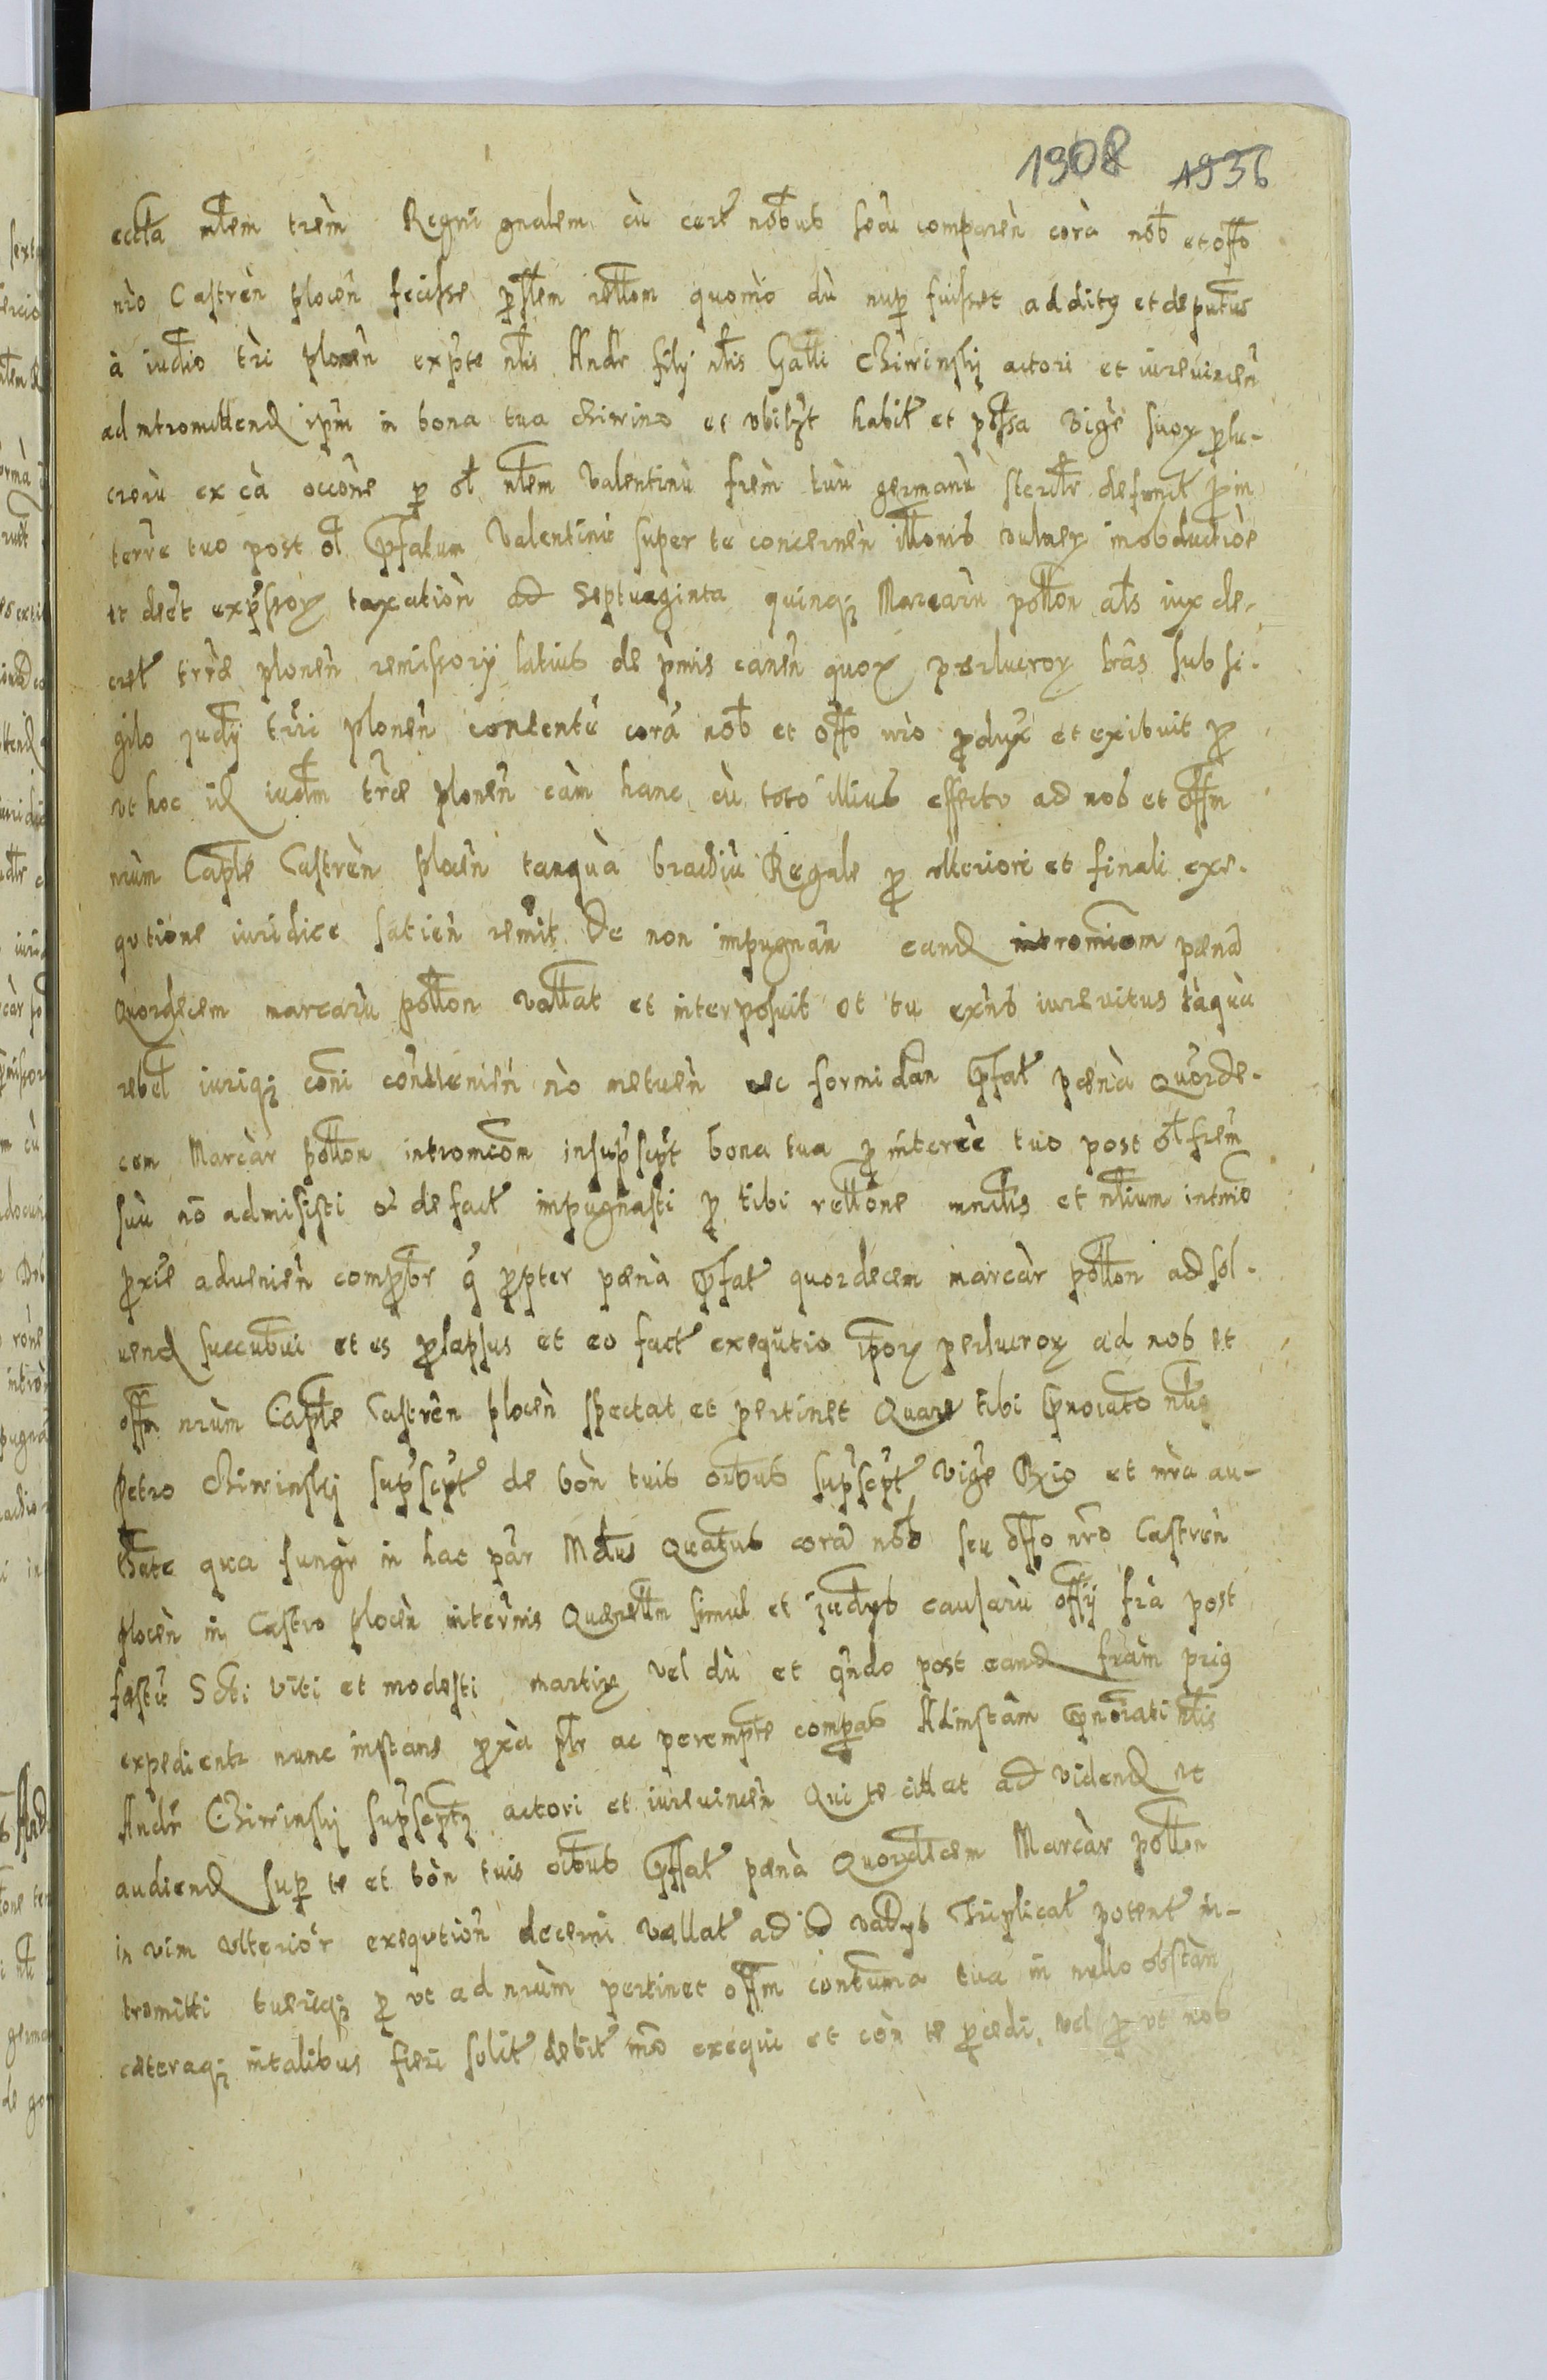 1308 1936
ectta ntem trem Regni gnalem cu cert nobbus secu comparen cora nob et offo
nro Castren plocen fecisse pntem rellom quomo du nup fuisset additq et deputus
a iudio tri plocen exprte nlis Andr filij nlis Galli Chiwinskij actori et iurevincen
ad intromittend ipm in bona tua Chiwino et ubilzt habit et possa vige suox plu-
croru ex ca occone p ol nlem Valentinu frem tuu germanu sterilr defunct pin
terre tuo post ol pfatum Valentinu super te concernen illonis vulnex inobductioe
et dect expssox taxation ad septuaginta quinqz Marcaru pollon als iux de-
cret trre plonen remissorij latius de pmis canen quox perlucrox bras sub si-
gilo judij tri plonen contentu cora nob et offo nro pdux et exibuit p
ut hoc id iudm trre plonen cam hanc cu toto illius effectu ad nos et offm
nrum Caple Castren plocen tanqua brachiu Regale p ulteriori et finali exe-
qutione iuridice satien remit De non impugnan eand intromiom pena
quordecem marcaru pollon vallat et interposuit et tu exns iurevitus taqua
rebel iuriqz coni contrauenien no metuen ac formidan pfat pena quorde-
cem Marcar pollon intromcom insupscpt bona tua p interee tuo post ol frem
suu no admisisti et de fact impugnasti p tibi rellone mnctlis et nlium intmo
pxie aduenien comptre q ppter pena pfat quordecem marcar pollon ad sol-
uend succubui et es plapsus et eo fact exequtio ipox perlucrox ad nos et
offm nrum Caple Castren plocen spectat et pertinet Quare tibi pnoiato nlis
Petro Chiwinskij supscpt de bon tuis oibus supscpt vige Rxio et nra au-
thate qua fungr in hac par Mdus Quatus cora nob seu offo nro Castren
plocen in Castro plocen intermis Querellm simul et judys causaru offij fra post
festu Scti Viti et modesti martix vel du et qndo post eand fram priq
expedientz nunc instans pxa plr ac perempte compas Ad instam pnoiati nlis
Andr Chiwinskij supscptz actori et iurevincen Qui te citat ad vidend et
audiend sup te et bon tuis oibus pfat pena Quordecem Marcar pollon
in vim ulterior exeqution decerni vallat ad id vadys Triplicat potent in-
tromitti tueriqz p ut ad nrum pertinet offm contuma tua in nullo obstan
ceteraqz in talibus fieri solit debit mo exequi et con te pcedi, vel p ut nob